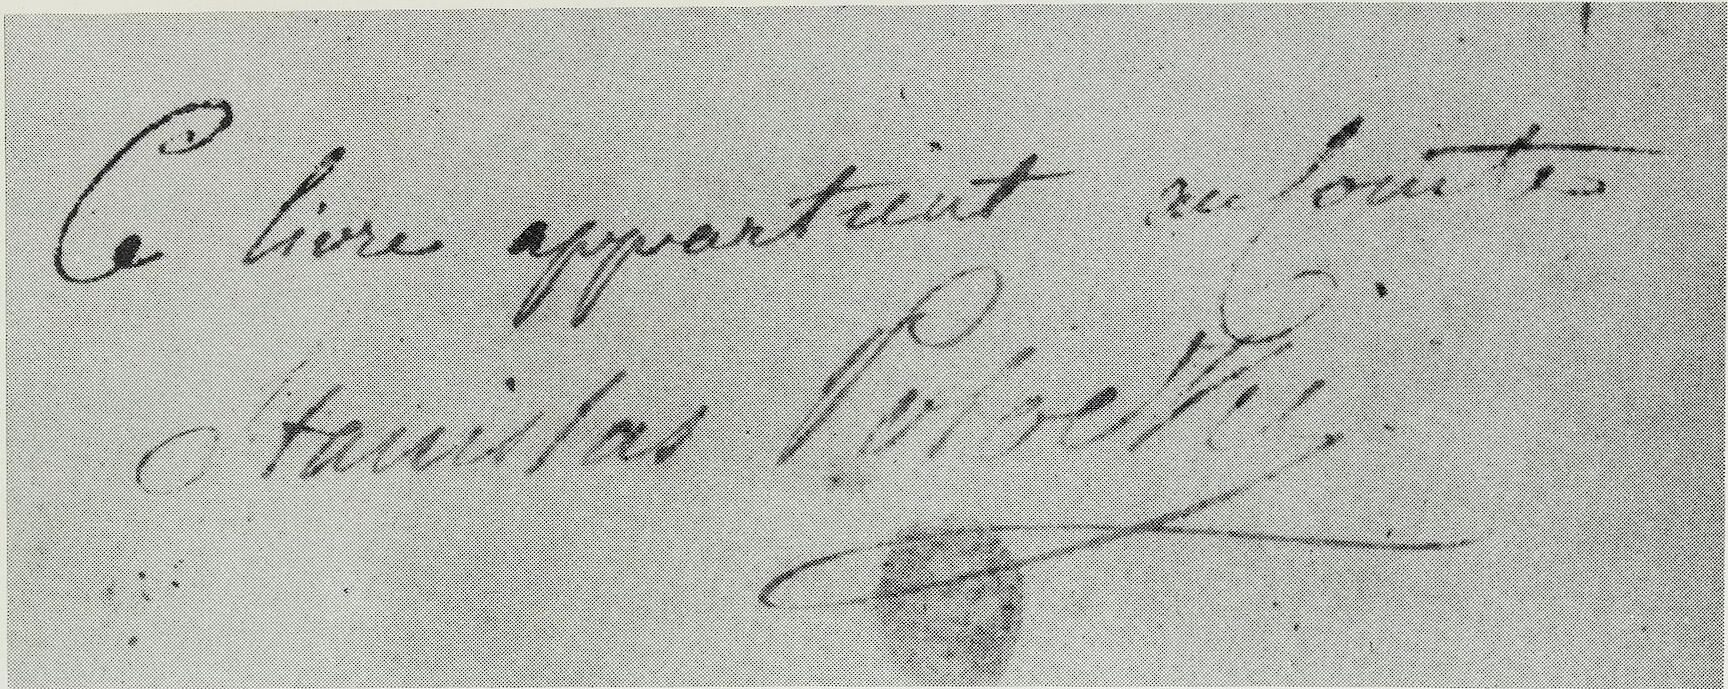 Ce livre appartient au Comte
Stanislas Potocki